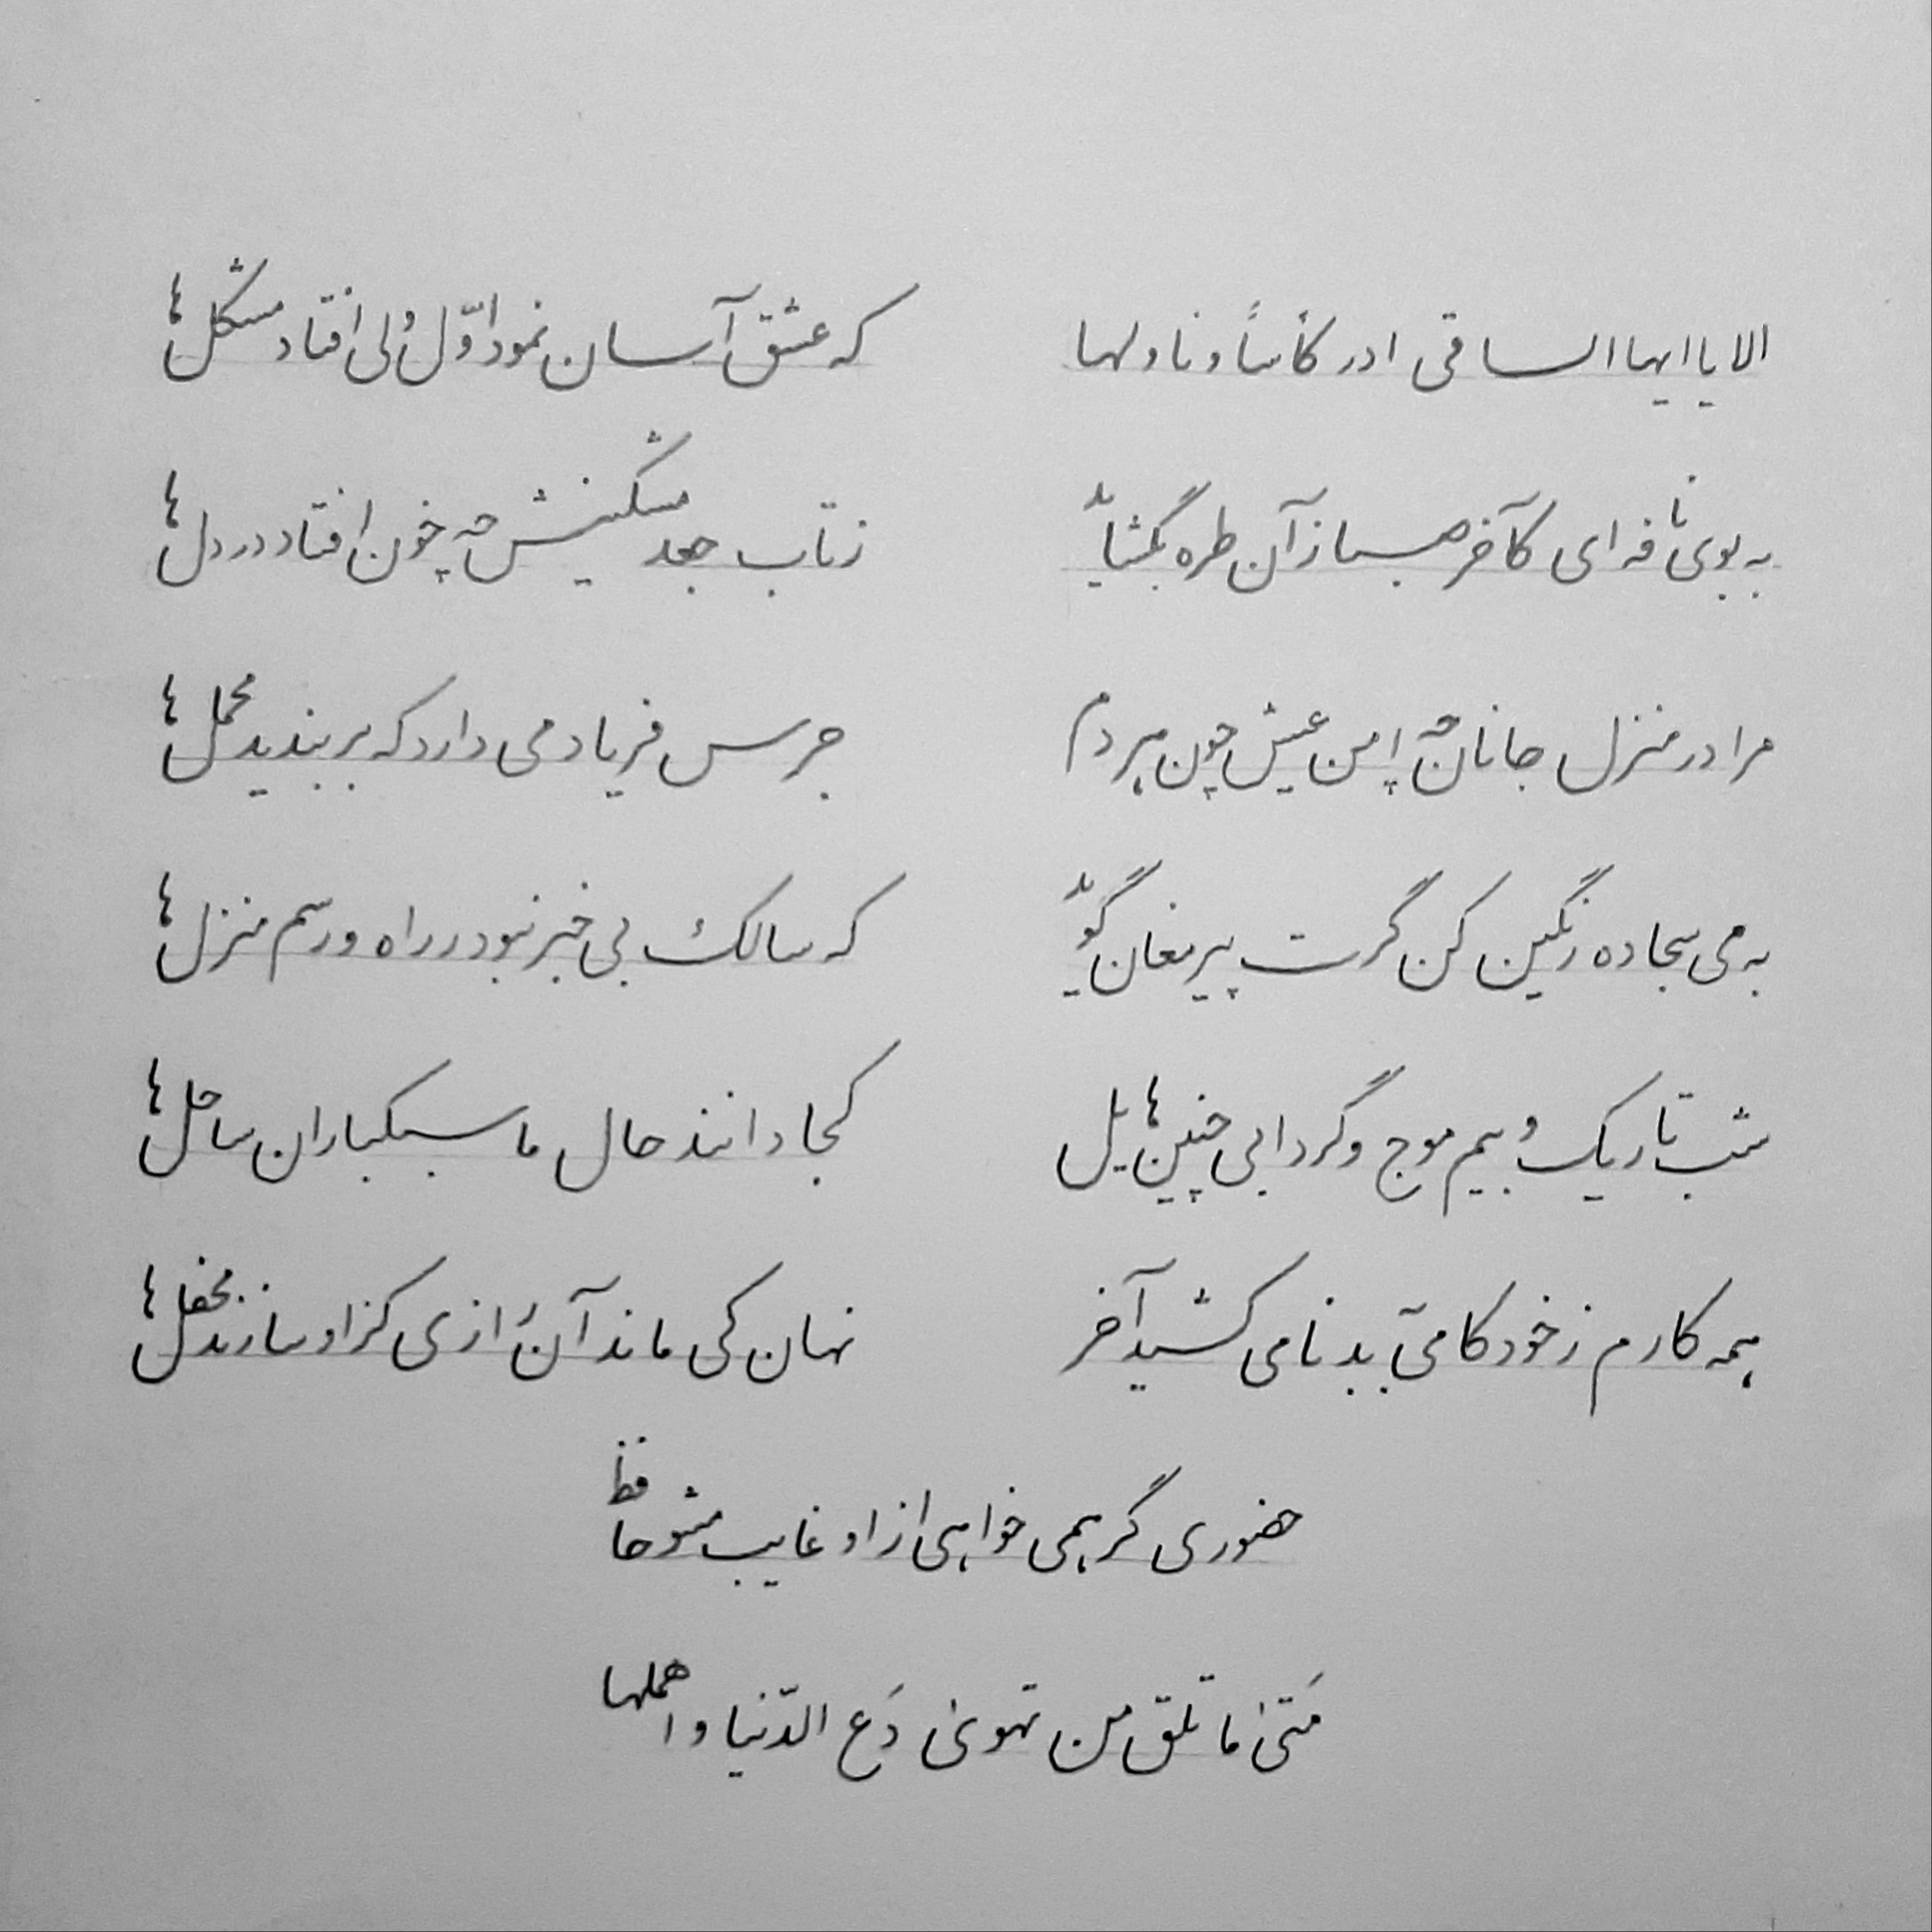 الا یا ایها الساقی ادر کأساً و ناولها که عشق آسان نمود اوّل ولی افتاد مشکل‌ها
به بوی نافه‌ای کآخر صبا زان طره بگشاید ز تاب جعد مشکینش چه خون افتاد در دل‌ها
مرا در منزل جانان چه امن عیش چون هر دم جرس فریاد می‌دارد که بربندید محمل‌ها
به می سجاده رنگین کن گرت پیر مغان گوید که سالک بی‌خبر نبود ز راه و رسم منزل‌ها
شب تاریک و بیم موج و گردابی چنین هایل کجا دانند حال ما سبکباران ساحل‌ها
همه کارم ز خود کامی به بدنامی کشید آخر نهان کی ماند آن رازی کز او سازند محفل‌ها
حضوری گر همی خواهی از او غایب مشو حافظ
مَتیٰ ما تلق من تهویٰ دَع الدّنیا و اهملها